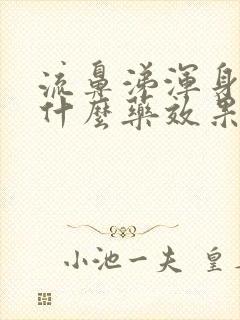 流鼻涕渾身
什麼藥效果
小池一夫 皇